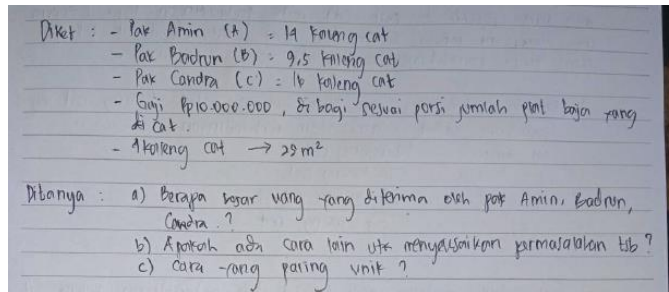 Diket : - Pak Amin (A) = 14 kaleng cat
- Pak Badrun (B) = 9,5 kaleng cat
- Pak Candra (C) = 16 kaleng cat
- Gaji Rp10.000.000, di bagi sesuai porsi jumlah plat baja yang
di cat.
- 1 kaleng cat → 29 m²
Ditanya : a) Berapa besar uang yang diterima oleh pak Amin, Badrun,
Candra ?
b) Apakah ada cara lain utk menyelesaikan permasalahan tsb ?
c) Cara yang paring unik ?